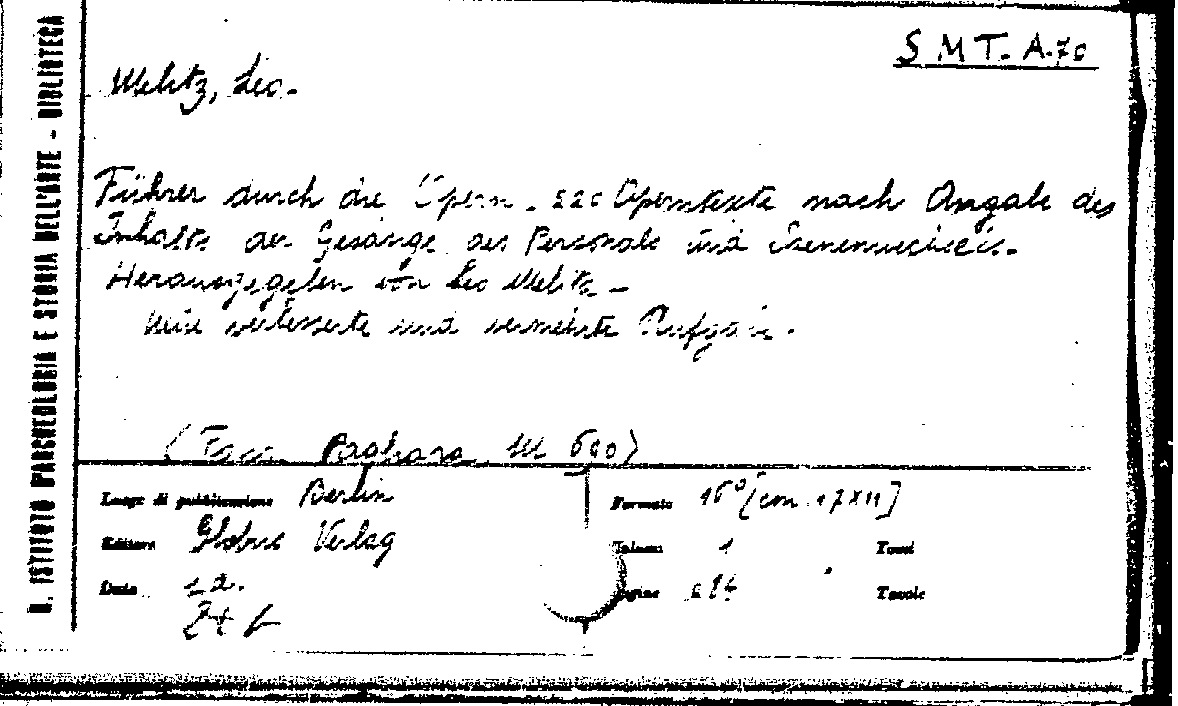 R. ISTITUTO D'ARCHEOLOGIA E STORIA DELL'ARTE - BIBLIOTECA
S M T. A.70
Melitz, Leo.
Führer durch die Opern. 220 Operntexte nach Angabe des
Inhalts der Gesänge des Personals und Szenenwechsels.
Herausgegeben von Leo Melitz -
Neue verbesserte und vermehrte Aufgabe.
(Racc. Pagliara M 600)
Luogo di pubblicazione Berlin
Formato 16° [cm 17x11]
Editore Globus Verlag
Volumi 1 Tomi
Data s.d.
Pagine Tavole